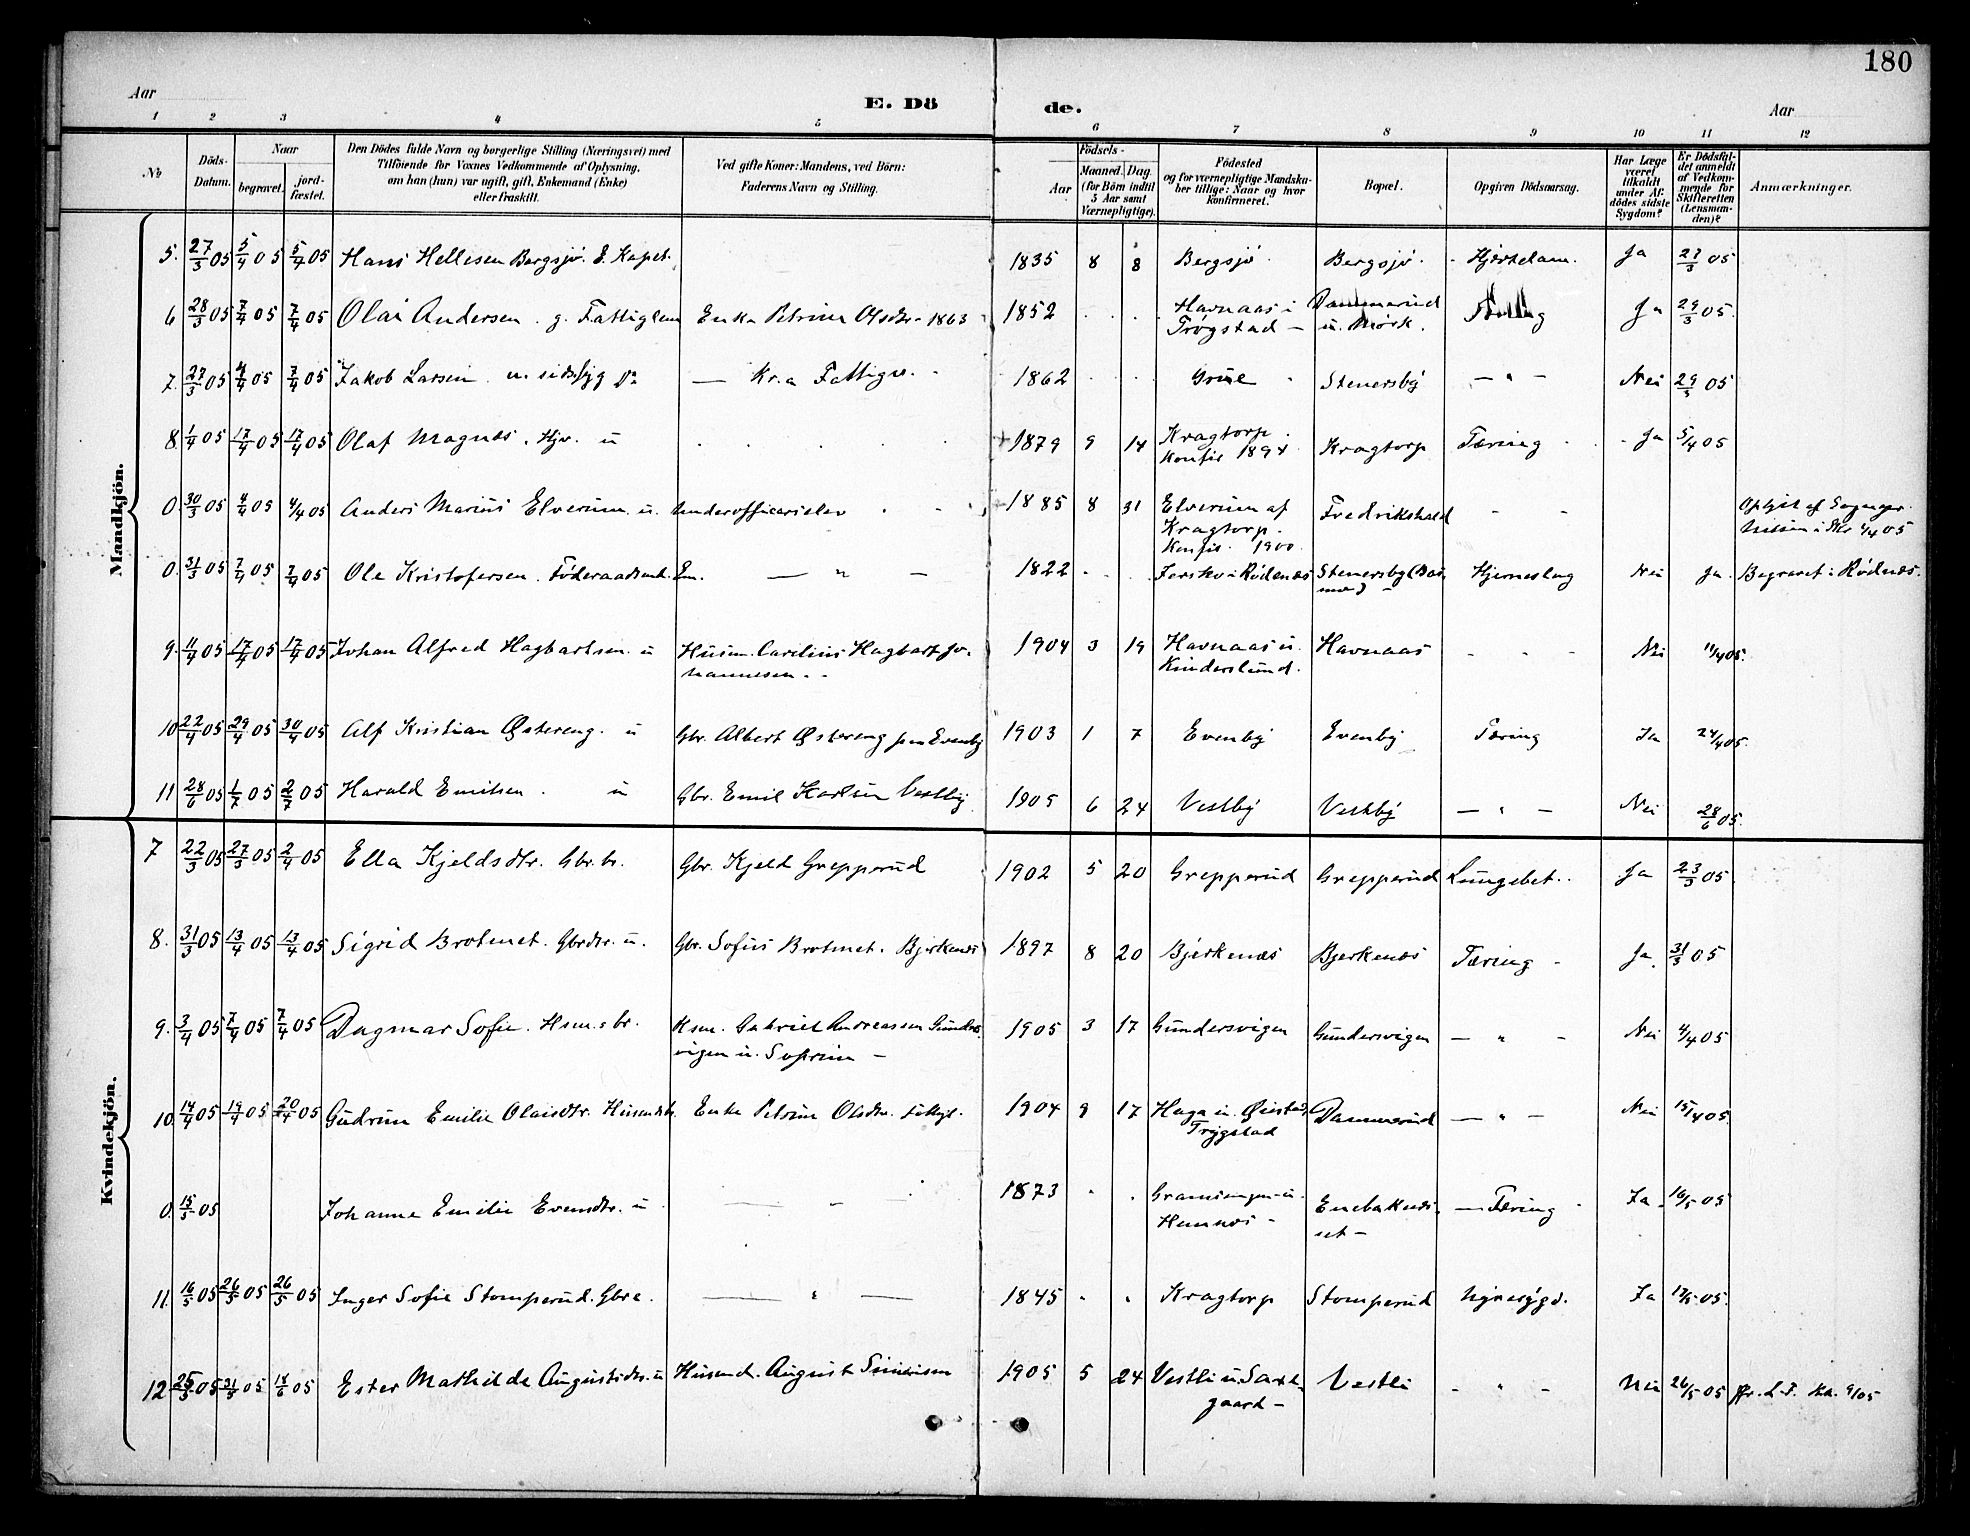 180
Aar
E. Dö
de.
Aar
1 2 3 4 5 6 7 8 9 10 11 12
No
Döds-Datum.
Naar
begravet.
jord-fæstet.
Den Dödes fulde Navn og borgerlige Stilling (Næringsvei) med
Tilföiende for Voxnes Vedkommende af Oplysning,
om han (hun) var ugift, gift, Enkemand (Enke)
eller fraskilt.
Ved gifte Koner: Mandens, ved Börn:
Faderens Navn og Stilling.
Födsels-
Aar
Maaned. Dag.
(for Börn indtil
5 Aar samt
Værnepligtige).
Födested
og for værnepligtige Mandska-
ber tillige: Naar og hvor
konfirmeret.
Bopæl.
Opgiven Dödsaarsag.
Har Læge
været
tilkaldt
under Af-
dödes sidste
Sygdom?
Er Dödsfal-
det anmeldt
af Vedkom-
mende for
Skifteretten
(Lensman-
den)?
Anmærkninger.
Mandkjön.
5. 27/3 05 5/4 05 5/4 05 Hans Hellesen Bergsjö. 1835 8 8 Bergsjö Bergsjö Ja 27/3 05
6 28/3 05 7/4 05 7/4 05 Olai Andersen . g. Fattiglem Enke Petrine Olsdtr. 1863 1852 Havnaas i Ja 29/3 05
Trøgstad u. Mörk.
7. 27/3 05 4/4 05 7/4 05 Jakob Larsen — Kr.a Fattigv. 1862 Grue Stenersby — " — Nei 29/3 05
8 1/4 05 17/4 05 17/4 05 Olaf Magnæs. u 1879 9 14 Kragtorp. Kragtorp Tæring Ja 5/4 05
Konfir 1894
0. 30/3 05 4/4 05 4/4 05 Anders Marius Elverum. u. Underofficerselev 1885 8 31 Elverum af Fredrikshald
Kragtorp.
Konfir. 1900.
4/4 05
0. 31/3 05 7/4 05 7/4 05 Ole Kristofersen. Föderaadsmd. Em. — " — 1822 i Rödenæs Stenersby Hjerneslag Nei Ja. Begravet i Rödnæs.
9. 11/4 05 17/4 05 17/4 05 Johan Alfred Hagbartsen. u Husm. Carelius Hagbart Jo- 1904 3 19 Havnaas u. Havnaas Nei 11/4 05.
hannesen. Kinderslund.
10 22/4 05 29/4 05 30/4 05 Alf Kristian Østereng. u Gbr. Albert Østereng Evenby 1903 1 7 Evenby Evenby Tæring Ja 24/4 05.
11 28/6 05 1/7 05 2/7 05 Harald Emilsen. u Gbr. Emil Karlsen Vestby 1905 6 24 Vestby Vestby — " — Nei 28/6 05.
Kvindekjön.
7 22/3 05 27/3 05 2/4 05 Ella Kjeldsdtr. Gbr.br. Gbr. Kjeld Grepperud 1902 5 20 Grepperud Grepperud Lungebet. Ja 23/3 05
8. 31/3 05 13/4 05 13/4 05 Sigrid Brotmet. Gbrdtr. u. Gbr. Sofus Brotmet. Bjerkenæs 1897 8 20 Bjerkenæs Bjerkenæs Tæring Ja. 31/3 05
9. 3/4 05 7/4 05 7/4 05 Dagmar Sofie. Hsm.s br. Hsm. Gabriel Andreassen Gunders- 1905 3 17 Gundersvigen Gundersvigen — " — Nei 4/4 05
vigen u.
10. 14/4 05 19/4 05 20/4 05 Gudrun Emilie Olaisdtr. Enke Petrine Olsdtr. 1904 9 17 Haga u. Øiestad Dammerud — " — Nei 15/4 05.
Trygstad
0. 15/5 05 Johanne Emilie Evensdtr. u — " — 1873 Tæring Ja 16/5 05
Hemnæs
11. 16/5 05 26/5 05 26/5 05 Inger Sofie Stomperud. Gbre. — " — 1845 Kragtorp Stomperud Nyresygd. Ja 17/5 05.
12 25/5 05 31/5 05 05 Ester Mathilde Augustsdtr. u Husmd. August Simensen 1905 5 24 Vestli u. Vestli — " — Nei 26/5 05
gaard —